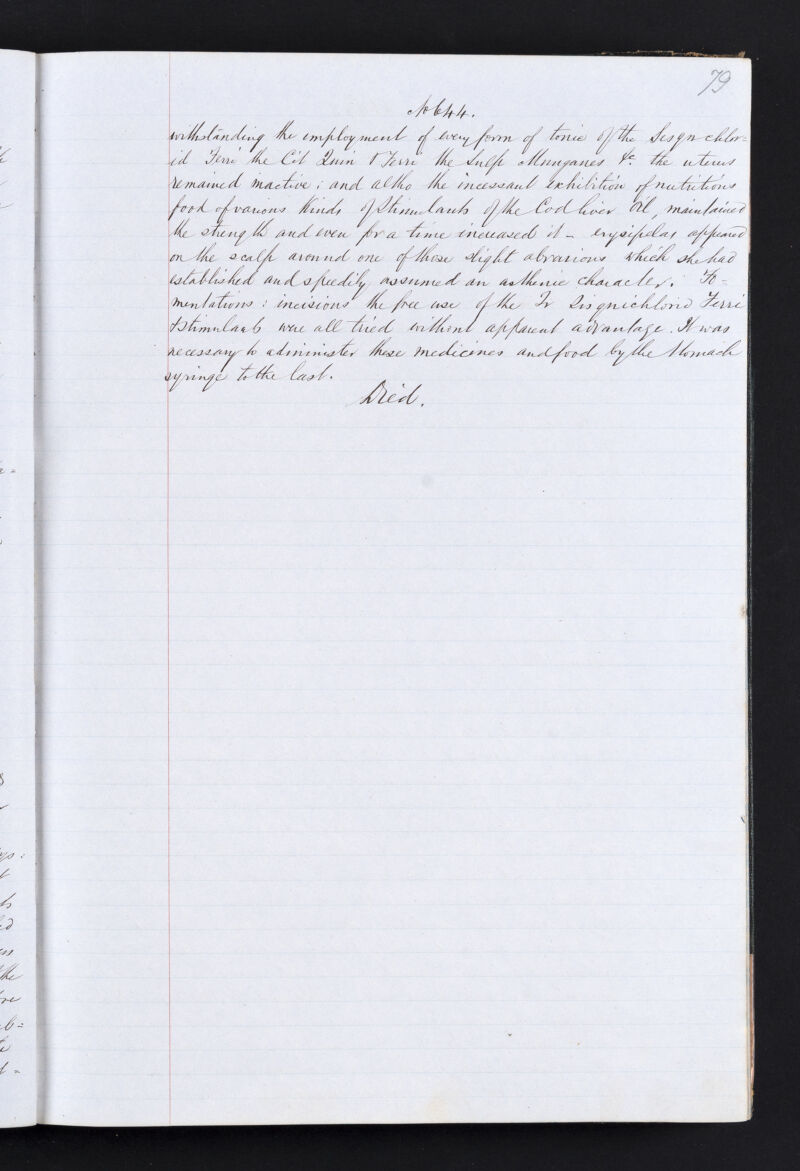 79
No 644.
withstanding the employment of every form of tonic of the Sesqu chlor=
id Ferri the Cit Quin & Ferri the Sulp Manganes &c. the uterus
remained inactive; and altho the incessant exhibition of nutritious
food of various kinds of Stimulants of the Cod liver Oil, maintained
the strength and even for a time increased it - erysipelas appeared
on the scalp around one of those slight abrasions which she had
established and speedily assumed an asthenic character. Fo=
mentations: incisions the free use of the Tr Sisquichlorid Ferri
& Stimulants were all tried without apparent advantage. It was
necessary to administer these medicines and food by the Stomach
syringe to the last.
Died.